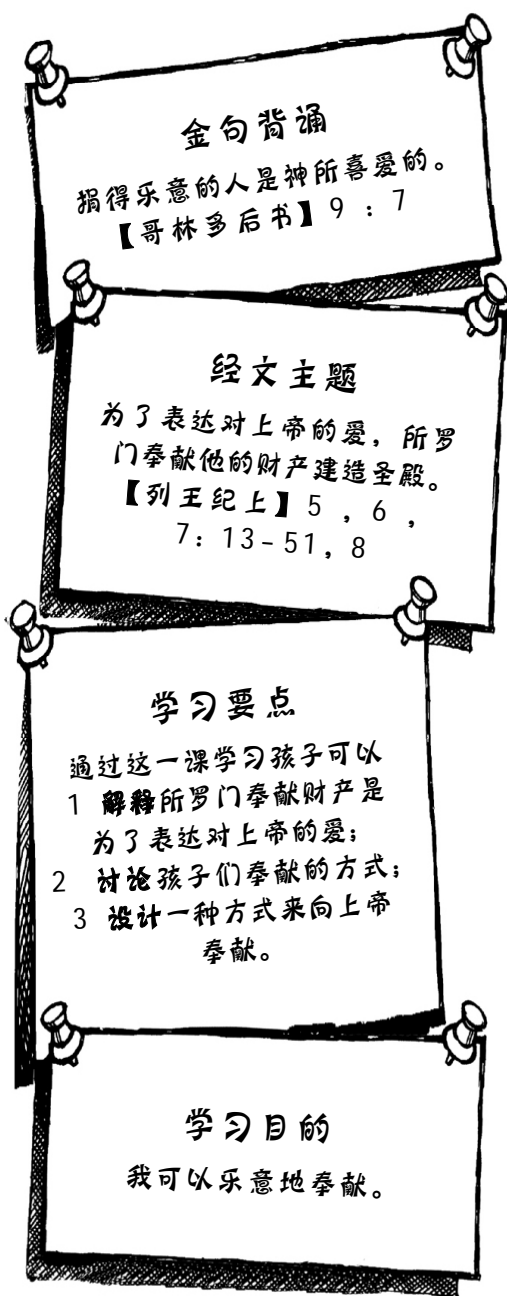 金句背诵
捐得乐意的人是神所喜爱的。
【哥林多后书】9 : 7
经文主题
为了表达对上帝的爱，所罗
门奉献他的财产建造圣殿。
【列王纪上】5 , 6 ,
7: 13-51, 8
学习要点
通过这一课学习孩子可以
1 解释所罗门奉献财产是
为了表达对上帝的爱；
2 讨论孩子们奉献的方式；
3 设计一种方式来向上帝
奉献。
学习目的
我可以乐意地奉献。